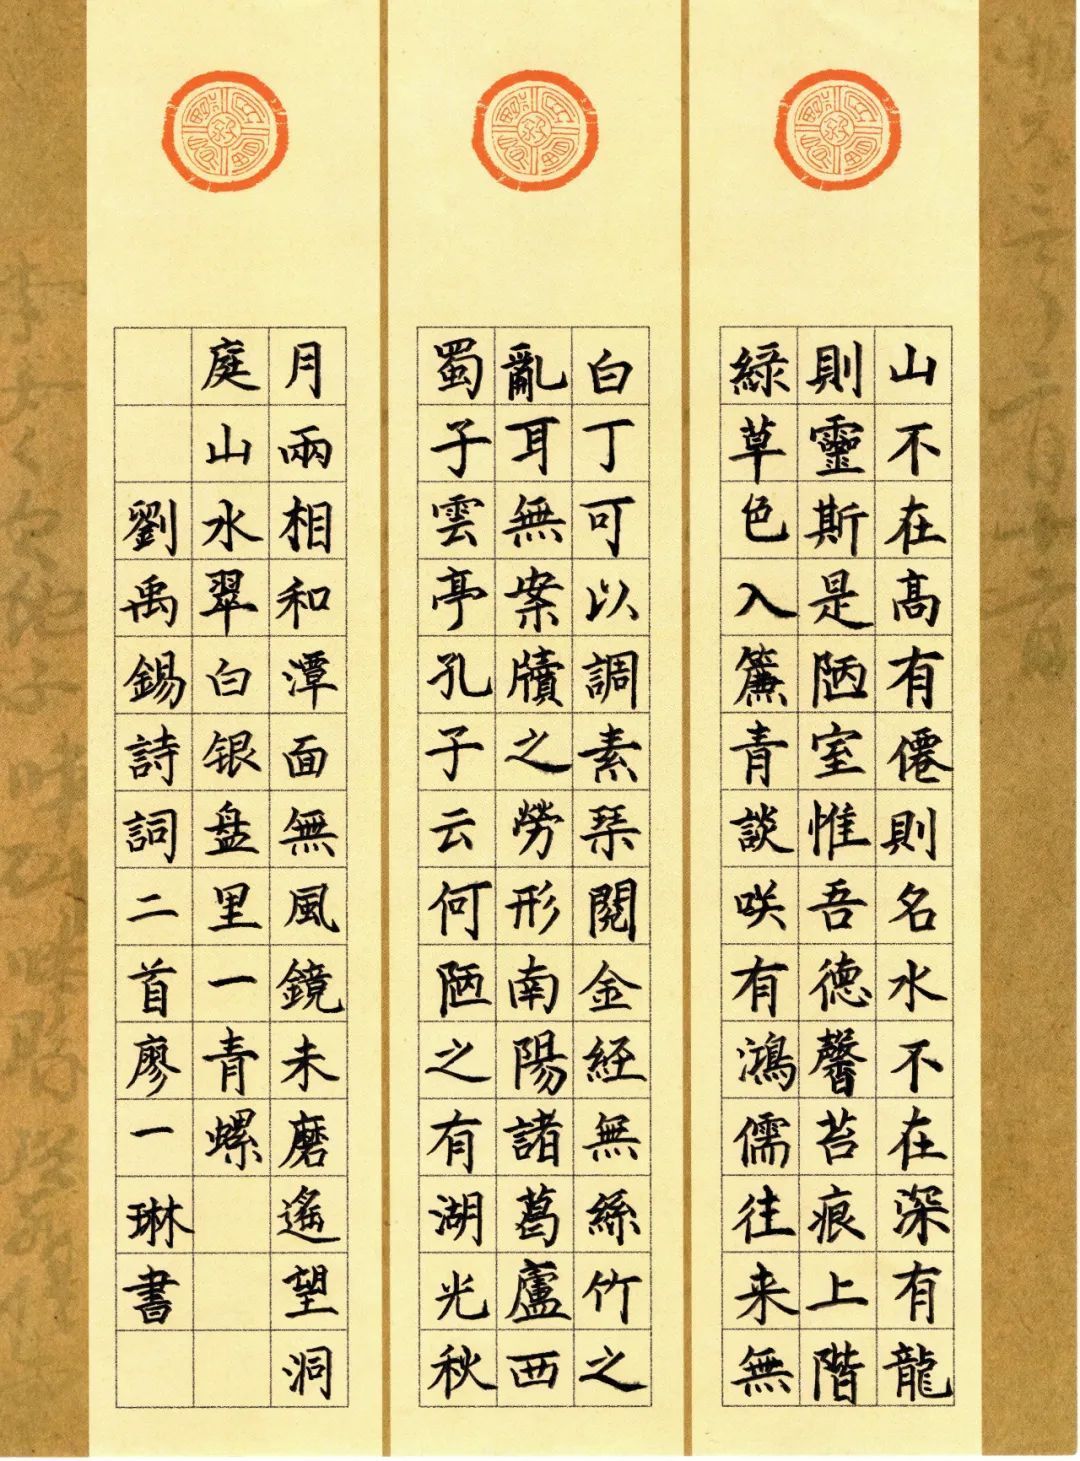 山不在髙有僊則名水不在深有龍
則靈斯是陋室惟吾德馨苔痕上階
綠草色入簾青談咲有鴻儒往来無
白丁可以調素琹閱金経無絲竹之
亂耳無案牘之勞形南陽諸葛廬西
蜀子雲亭孔子云何陋之有湖光秋
月兩相和潭面無風鏡未磨遙望洞
庭山水翠白银盘里一青螺
劉禹錫詩詞二首廖一琳書